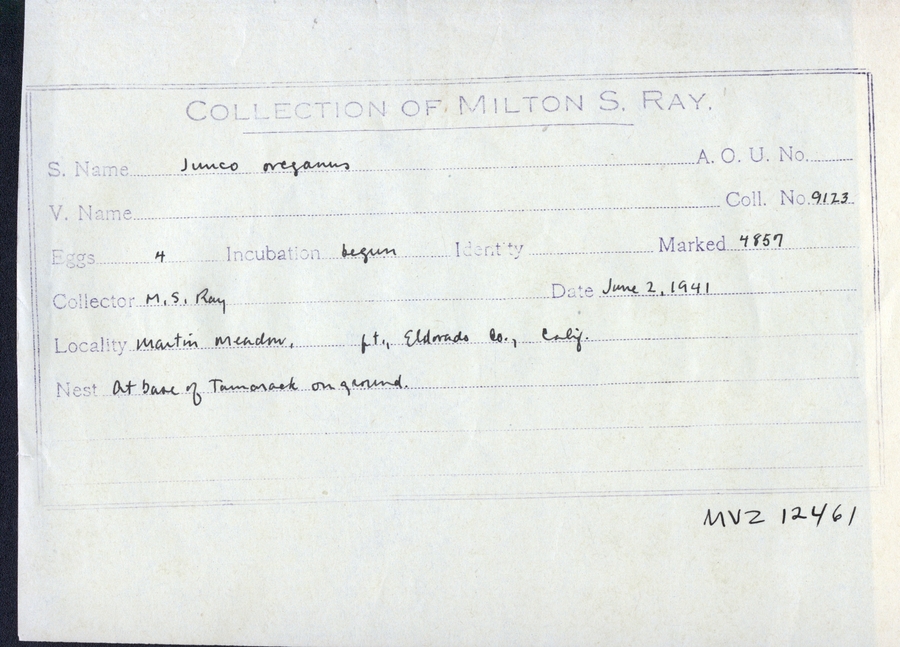 COLLECTION OF MILTON S. RAY.
S. Name Junco oreganus A. O. U. No.
V. Name Coll. No. 9123
Eggs 4 Incubation begun Identity Marked 4857
Collector M. S. Ray Date June 2, 1941
Locality Martin Meadow, ft., Eldorado Co., Calif.
Nest At base of Tamarack on ground.
MVZ 12461